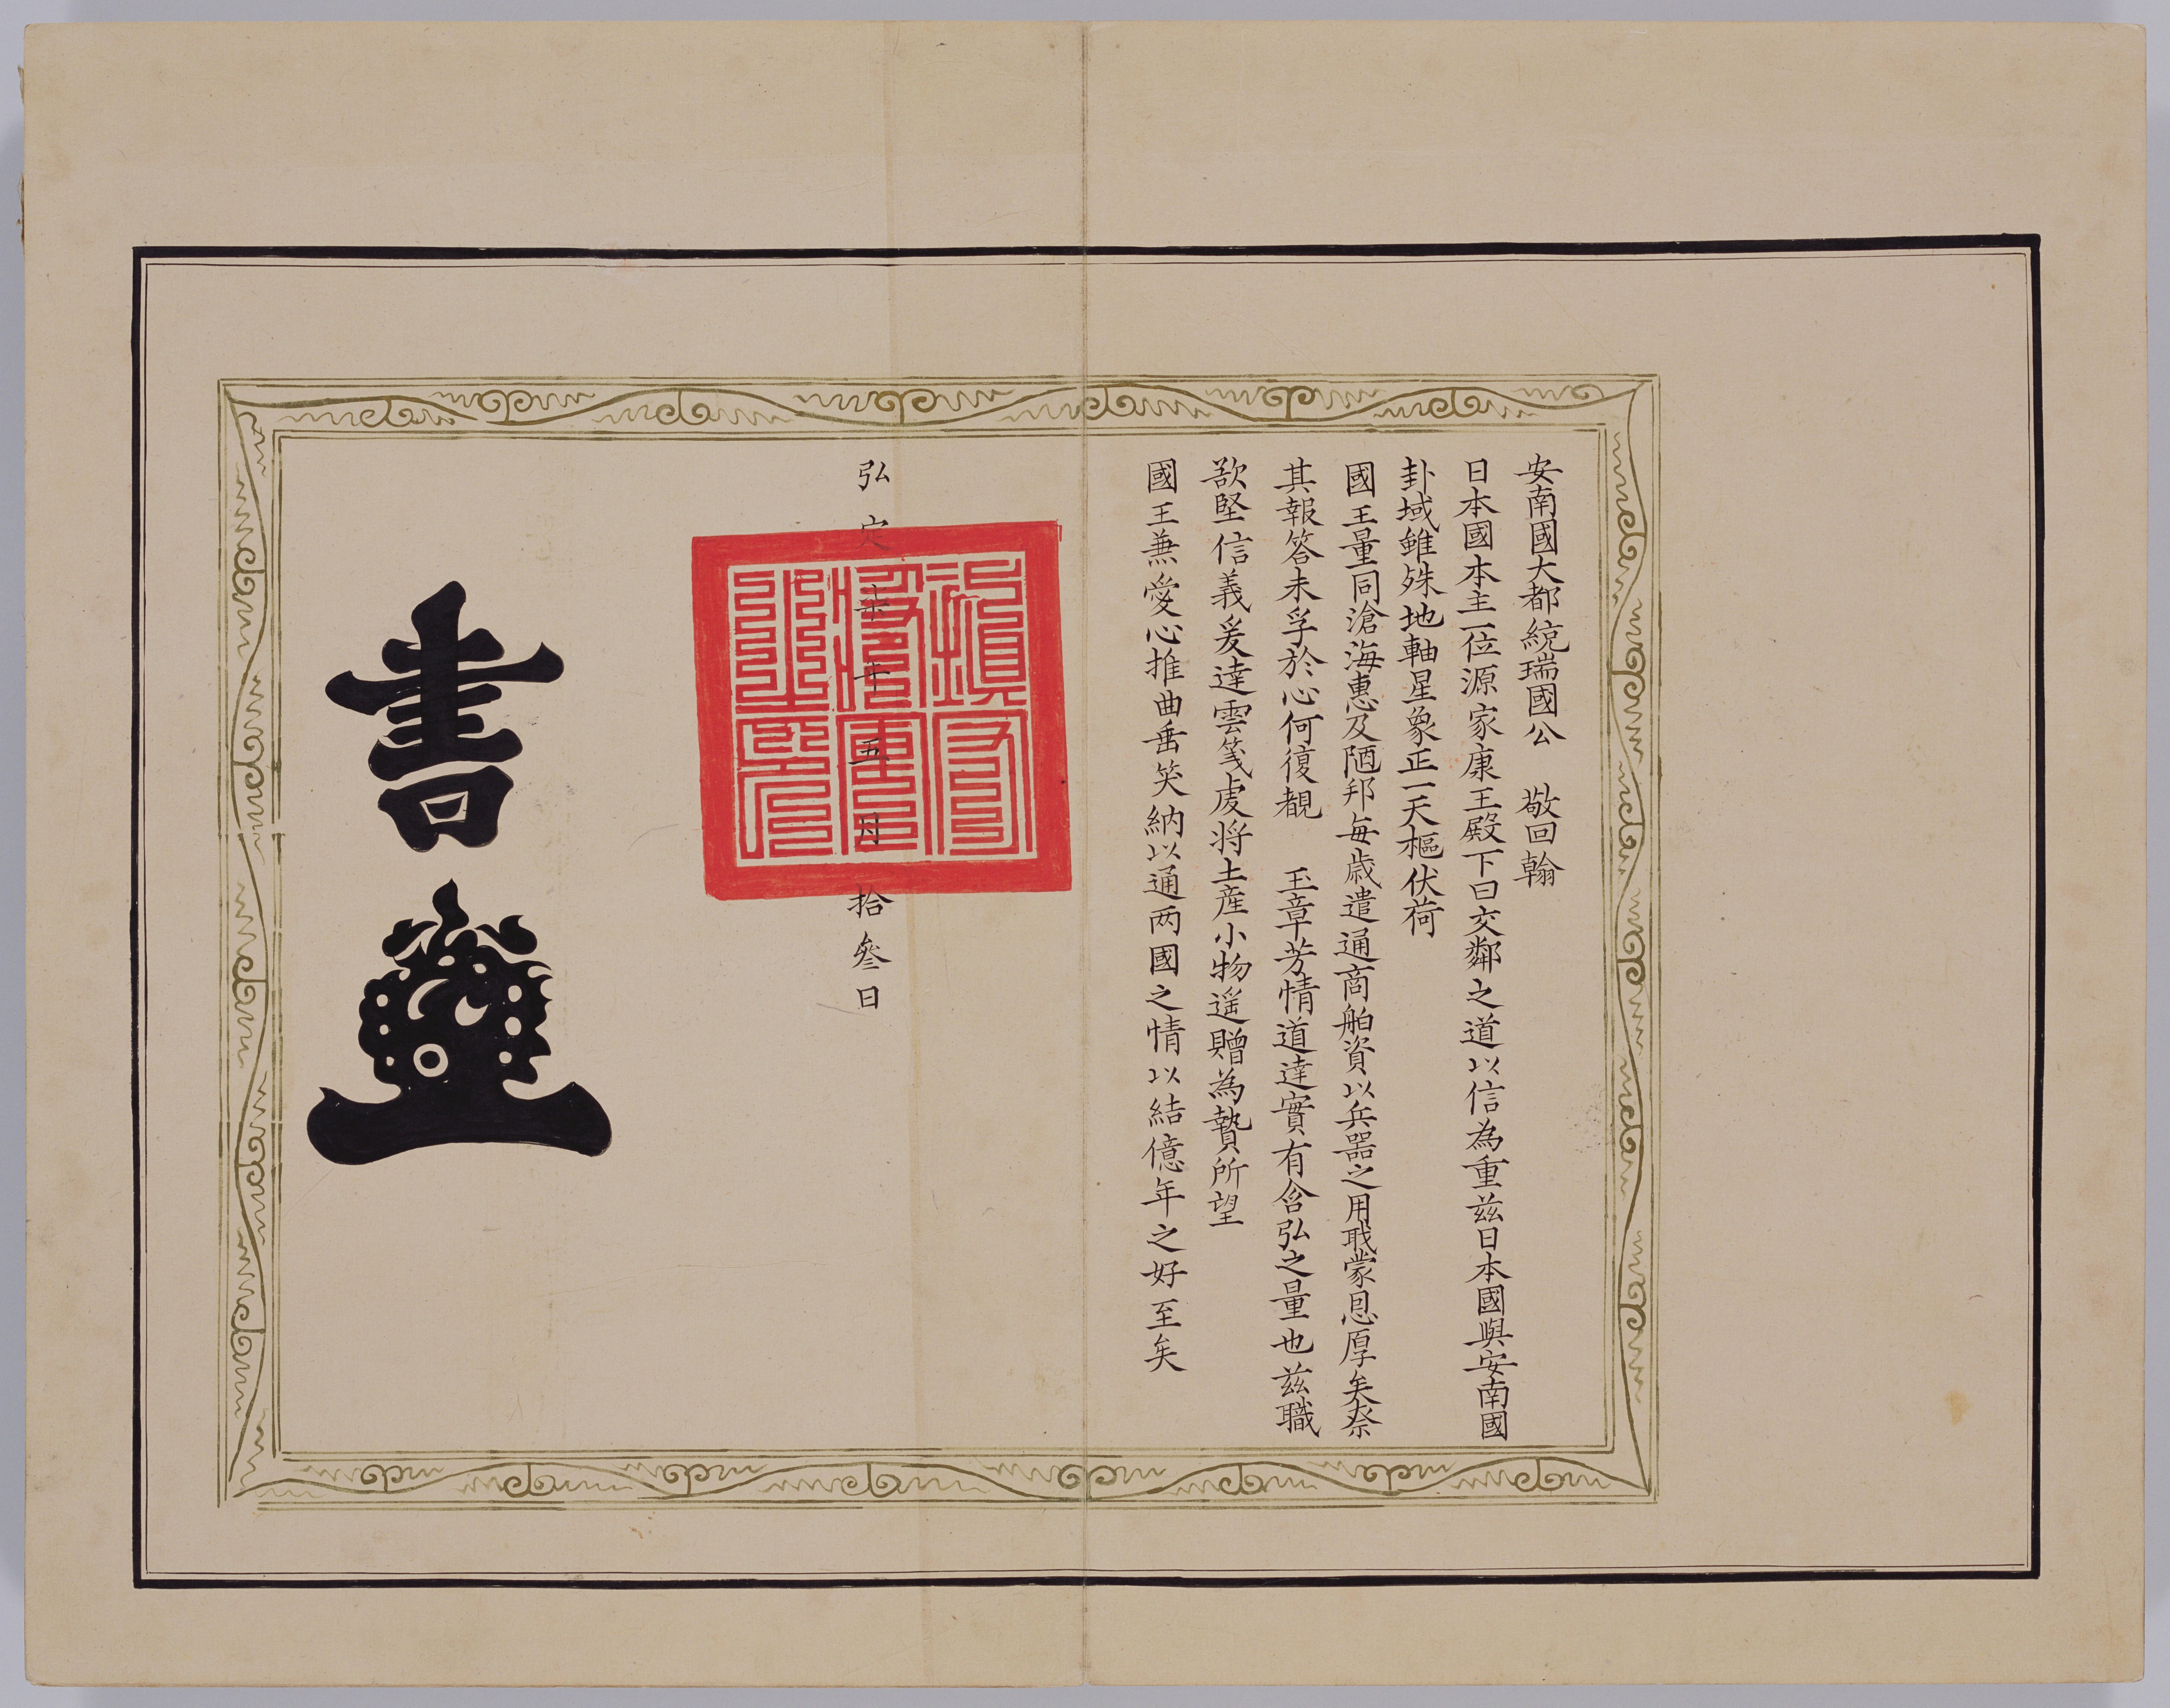 安南國大都統瑞國公　敬回翰
日本國本主一位源家康王殿下曰交鄰之道以信為重茲日本國與安南國
卦域雖殊地軸星象正一天樞伏荷
國王量同滄海惠及陋邦每歲遣通商舶資以兵器之用戢蒙恩厚矣奈
其報答未孚於心何復覩　玉章芳情道達實有含弘之量也茲職
欲堅信義爰達雲箋虔將土産小物遥贈為贄所望
國王兼愛心推曲垂笑納以通两國之情以結億年之好至矣
弘定柒年五月拾叁日
鎮守將軍之印
書